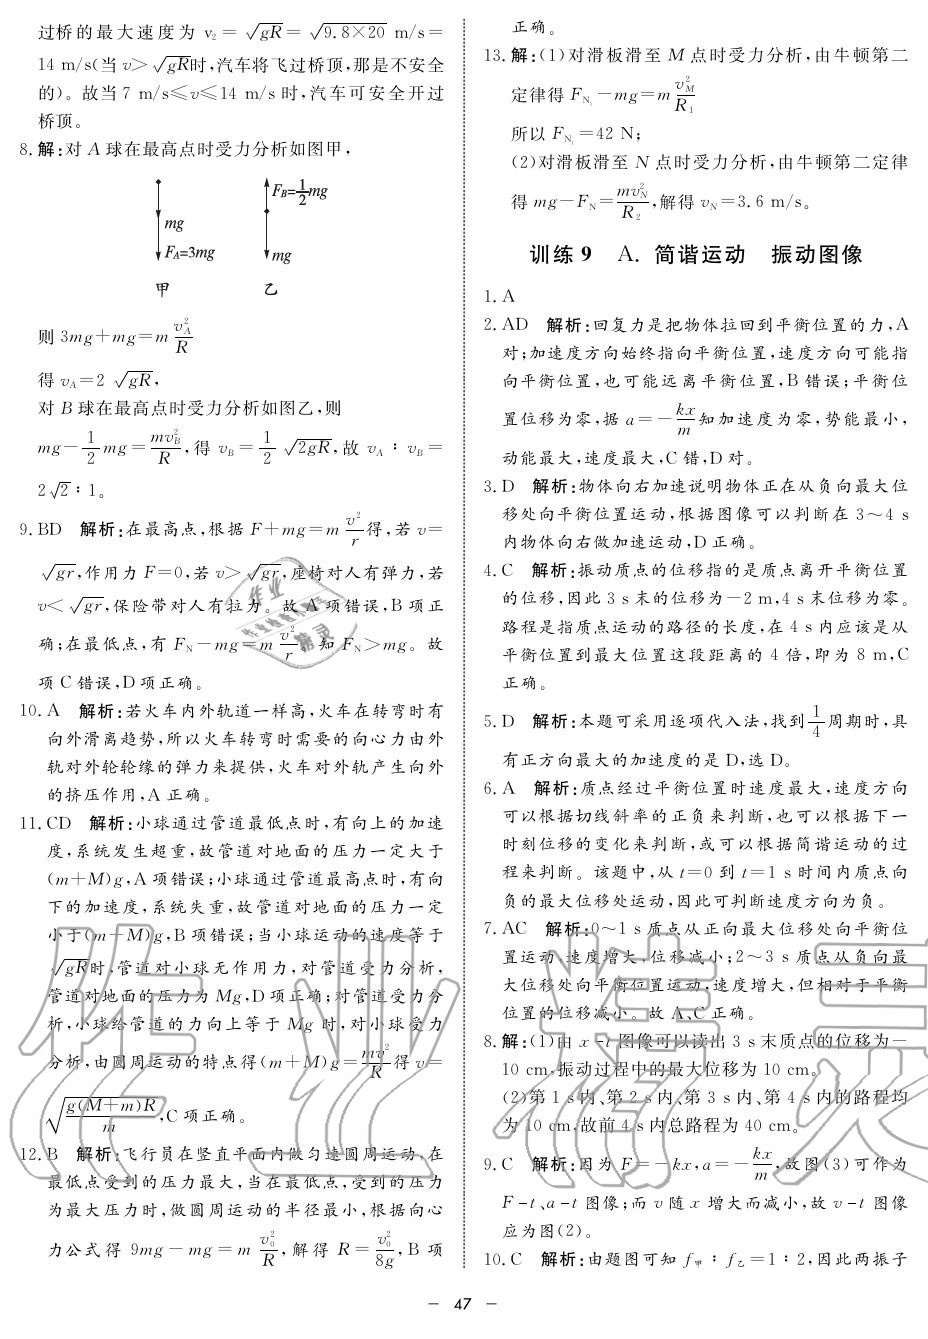 过桥的最大速度为 v₂ = √gR = √9.8×20 m/s =
14 m/s(当 v>√gR时,汽车将飞过桥顶,那是不安全
的)。故当 7 m/s≤v≤14 m/s 时,汽车可安全开过
桥顶。
8. 解:对 A 球在最高点时受力分析如图甲,
mg
F_A=3mg
甲
F_B=1/2mg
mg
乙
则 3mg+mg=m v_A²/R
得 v_A=2 √gR,
对 B 球在最高点时受力分析如图乙,则
mg-1/2 mg=mv_B²/R,得 v_B=1/2 √2gR,故 v_A∶v_B=
2√2∶1。
9. BD 解析:在最高点,根据 F+mg=m v²/r 得,若 v=
√gr,作用力 F=0,若 v>√gr,座椅对人有弹力,若
v<√gr,保险带对人有拉力。故 A 项错误,B 项正
确;在最低点,有 F_N-mg=m v²/r,知 F_N>mg。故
项 C 错误,D 项正确。
10. A 解析:若火车内外轨道一样高,火车在转弯时有
向外滑离趋势,所以火车转弯时需要的向心力由外
轨对外轮轮缘的弹力来提供,火车对外轨产生向外
的挤压作用,A 正确。
11. CD 解析:小球通过管道最低点时,有向上的加速
度,系统发生超重,故管道对地面的压力一定大于
(m+M)g,A 项错误;小球通过管道最高点时,有向
下的加速度,系统失重,故管道对地面的压力一定
小于(m+M)g,B 项错误;当小球运动的速度等于
√gR时,管道对小球无作用力,对管道受力分析,
管道对地面的压力为 Mg,D 项正确;对管道受力分
析,小球给管道的力向上等于 Mg 时,对小球受力
分析,由圆周运动的特点得(m+M)g=mv²/R 得 v=
√(g(M+m)R/m),C 项正确。
12. B 解析:飞行员在竖直平面内做匀速圆周运动,在
最低点受到的压力最大,当在最低点,受到的压力
为最大压力时,做圆周运动的半径最小,根据向心
力公式得 9mg-mg=m v₀²/R,解得 R=v₀²/8g,B 项
正确。
13. 解:(1)对滑板滑至 M 点时受力分析,由牛顿第二
定律得 F_N₁-mg=m v_M²/R₁
所以 F_N₁=42 N;
(2)对滑板滑至 N 点时受力分析,由牛顿第二定律
得 mg-F_N=mv_N²/R₂,解得 v_N=3.6 m/s。
训练 9 A. 简谐运动 振动图像
1. A
2. AD 解析:回复力是把物体拉回到平衡位置的力,A
对;加速度方向始终指向平衡位置,速度方向可能指
向平衡位置,也可能远离平衡位置,B 错误;平衡位
置位移为零,据 a=-kx/m知加速度为零,势能最小,
动能最大,速度最大,C 错,D 对。
3. D 解析:物体向右加速说明物体正在从负向最大位
移处向平衡位置运动,根据图像可以判断在 3～4 s
内物体向右做加速运动,D 正确。
4. C 解析:振动质点的位移指的是质点离开平衡位置
的位移,因此 3 s 末的位移为-2 m,4 s 末位移为零。
路程是指质点运动的路径的长度,在 4 s 内应该是从
平衡位置到最大位置这段距离的 4 倍,即为 8 m,C
正确。
5. D 解析:本题可采用逐项代入法,找到1/4周期时,具
有正方向最大的加速度的是 D,选 D。
6. A 解析:质点经过平衡位置时速度最大,速度方向
可以根据切线斜率的正负来判断,也可以根据下一
时刻位移的变化来判断,或可以根据简谐运动的过
程来判断。该题中,从 t=0 到 t=1 s 时间内质点向
负的最大位移处运动,因此可判断速度方向为负。
7. AC 解析:0～1 s 质点从正向最大位移处向平衡位
置运动,速度增大,位移减小;2～3 s 质点从负向最
大位移处向平衡位置运动,速度增大,但相对于平衡
位置的位移减小。故 A、C 正确。
8. 解:(1)由 x-t 图像可以读出 3 s 末质点的位移为-
10 cm,振动过程中的最大位移为 10 cm。
(2)第 1 s 内、第 2 s 内、第 3 s 内、第 4 s 内的路程均
为 10 cm,故前 4 s 内总路程为 40 cm。
9. C 解析:因为 F=-kx,a=-kx/m,故图(3)可作为
F-t、a-t 图像;而 v 随 x 增大而减小,故 v-t 图像
应为图(2)。
10. C 解析:由题图可知 f甲∶f乙=1∶2,因此两振子
- 47 -
作业精灵